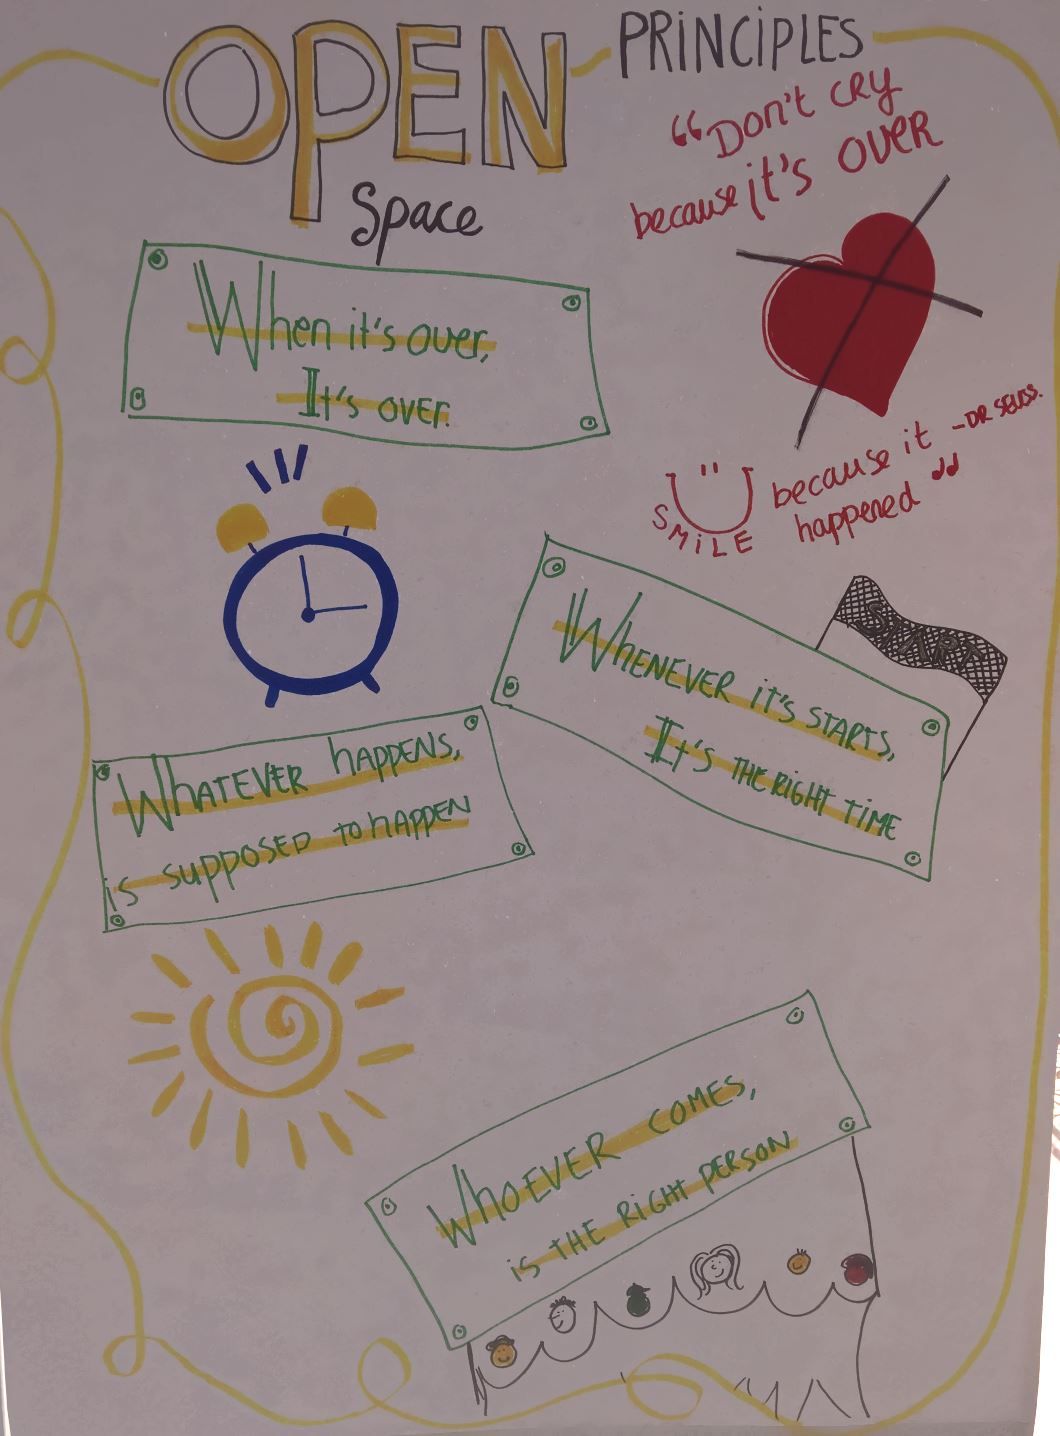 OPEN PRINCIPLES
Space
“Don't cry
because it's over
SMILE because it - DR SEUSS.
happened”
When it's over,
It's over.
START
Whenever it's starts,
It's the right time
Whatever happens,
is supposed to happen
Whoever comes,
is the right person